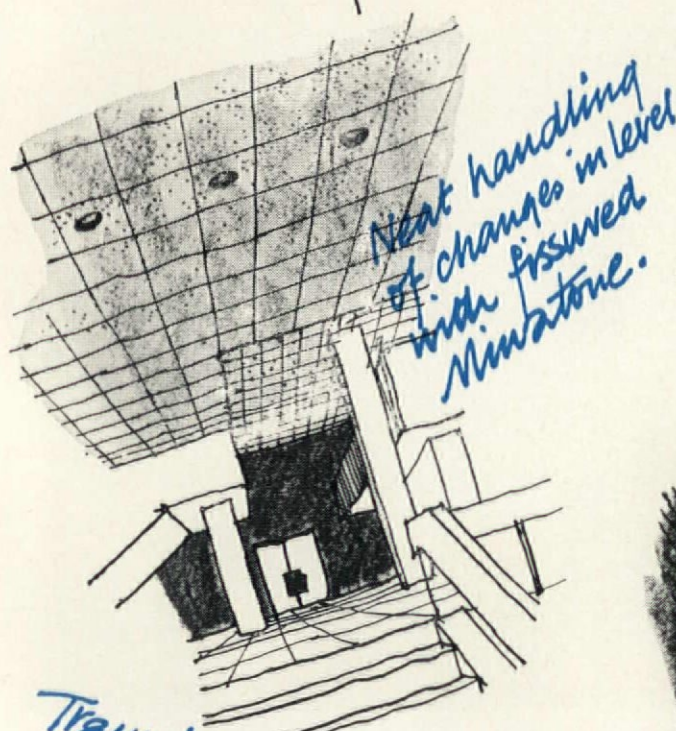 Neat handling
of changes in level
with fissured
Minatone.